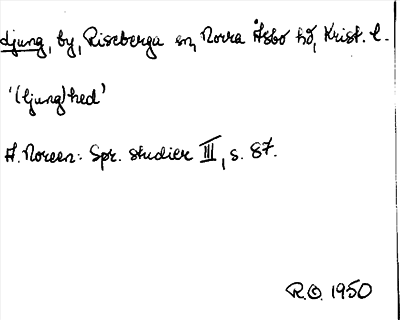 djung, by, Riseberga sn, Norra Åsbo hd, Krist. l.
'(ljung)hed'
A. Noreen: Spr. studier III, s. 87.
R.O. 1950